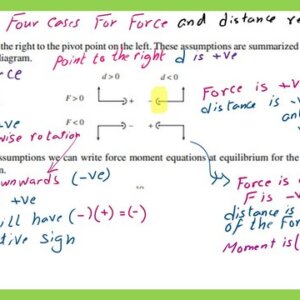 Four Cases For Force and distance re
the right to the pivot point on the left. These assumptions are summarized
diagram.
Point to the right d is +ve
rce
d > 0
d < 0
F > 0
+
-
Force is +v
distance is -v
F < 0
-
+
wise rotation
assumptions we can write force moment equations at equilibrium for the
n.
ownwards (-ve)
+ve
ill have (-)(+) = (-)
tive sign
Force is
F is -v
distance is
of the For
Moment is (